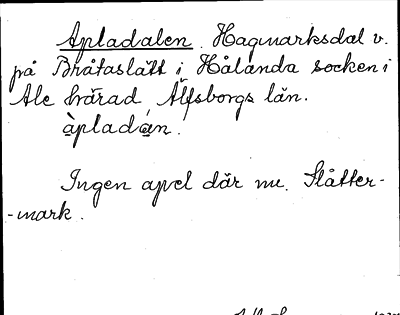 Apladalen. Hagmarksdal v.
på Bråtaslätt i Hålanda socken i
Ale härad, Älfsborgs län.
àpladán.
Ingen apel där nu. Slåtter-
-mark.